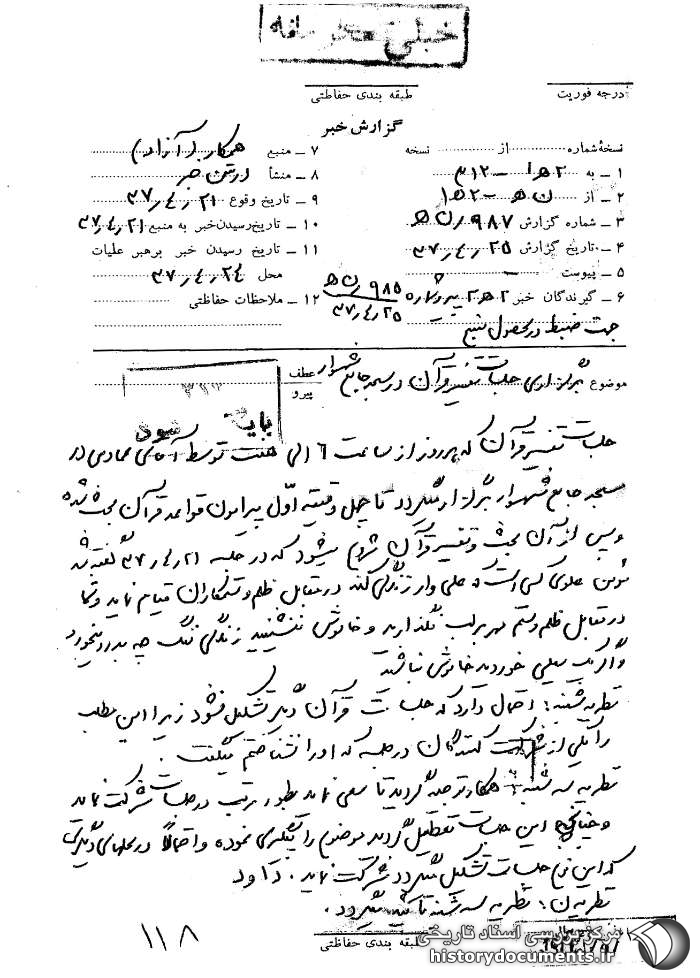 خیلی محرمانه
درجه فوریت
طبقه بندی حفاظتی
گزارش خبر
نسخهٔ شماره از نسخه
۱ – به ۲ ه‍ ۱ – ۳۱۲
۲ – از ن ه‍ – ۲ ه‍ ۱
۳ – شماره گزارش ۹۸۷ / ن ه‍
۴ – تاریخ گزارش ۳۷/۴/۲۵
۵ – پیوست –
۶ – گیرندگان خبر ۲ ه‍ ۲ پیرو شماره ۹۸۵ / ن ه‍ ۳۷/۴/۲۵
جهت ضبط در محصول منبع
۷ – منبع همکار (آزاد)
۸ – منشأ
۹ – تاریخ وقوع ۳۷/۴/۲۱
۱۰ – تاریخ رسیدن خبر به منبع ۳۷/۴/۲۱
۱۱ – تاریخ رسیدن خبر برهبر عملیات
محل ۳۷/۴/۲۴
۱۲ – ملاحظات حفاظتی
موضوع برگزاری جلسات تفسیر قرآن در مسجد جامع شهسوار
عطف
پیرو
جلسات تفسیر قرآن که هر روز از ساعت ۶ الی هفت توسط آقای عمادی در
مسجد جامع شهسوار برگزار میگردد تا چهل دقیقه اول پیرامون قواعد قرآن بحث شده
و پس از آن بحث و تفسیر قرآن شروع میشود که در جلسه ۳۷/۴/۲۱ گفته شد
مؤمن علوی کسی است که علی وار زندگی کند در مقابل ظلم و ستمکاران قیام نماید و شما
در مقابل ظلم و ستم مهر بر لب نگذارید و خاموش ننشینید زندگی ننگ چه بدرد میخورد
و اگر یک سیلی خوردید خاموش نباشید
نظریه شنبه: احتمال دارد که جلسات قرآن دیگر تشکیل نشود زیرا این مطلب
را یکی از شرکت کنندگان در جلسه که او را نشناختم میگفت.
نظریه سه شنبه: همکار توجیه گردید تا سعی نماید بطور مرتب در جلسات شرکت نماید
و چنانچه این جلسات تعطیل گردید موضوع را پیگیری نموده و احتمالاً در محلهای دیگری
که این نوع جلسات تشکیل میگردد شرکت نماید. داود
نظریه ن ه‍: نظریه سه شنبه تأیید میگردد.
طبقه بندی حفاظتی
۱۱۸
مرکز بررسی اسناد تاریخی
historydocuments.ir